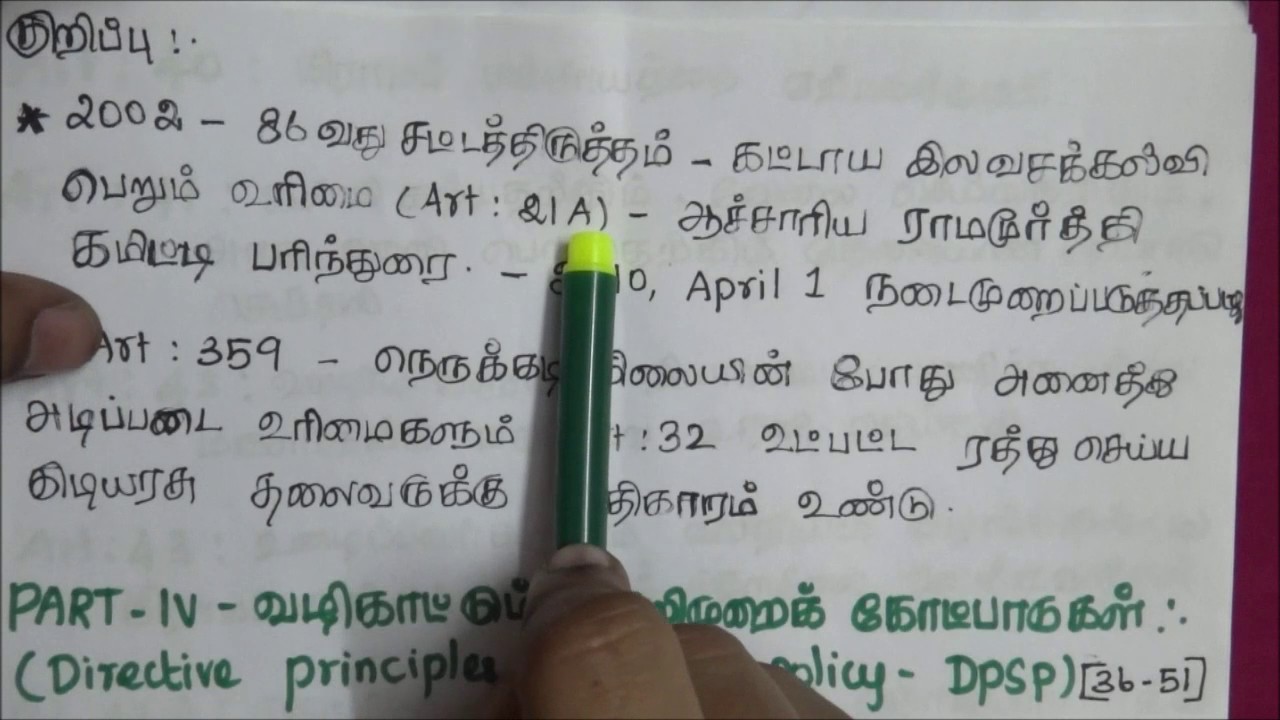 குறிப்பு :-
* 2002 - 86வது சட்டத்திருத்தம் - கட்டாய இலவசக்கல்வி
பெறும் உரிமை (Art : 21A) - ஆச்சாரிய ராமமூர்த்தி
கமிட்டி பரிந்துரை. - 10, April 1 நடைமுறைப்படுத்தப்பட
Art : 359 - நெருக்கடி நிலையின் போது அனைத்து
அடிப்படை உரிமைகளும் : 32 உட்பட்ட ரத்து செய்ய
குடியரசு தலைவருக்கு திகாரம் உண்டு.
PART - IV - வழிகாட்டுப் முறைக் கோட்பாடுகள் :-
(Directive principles olicy - DPSP) [36-51]